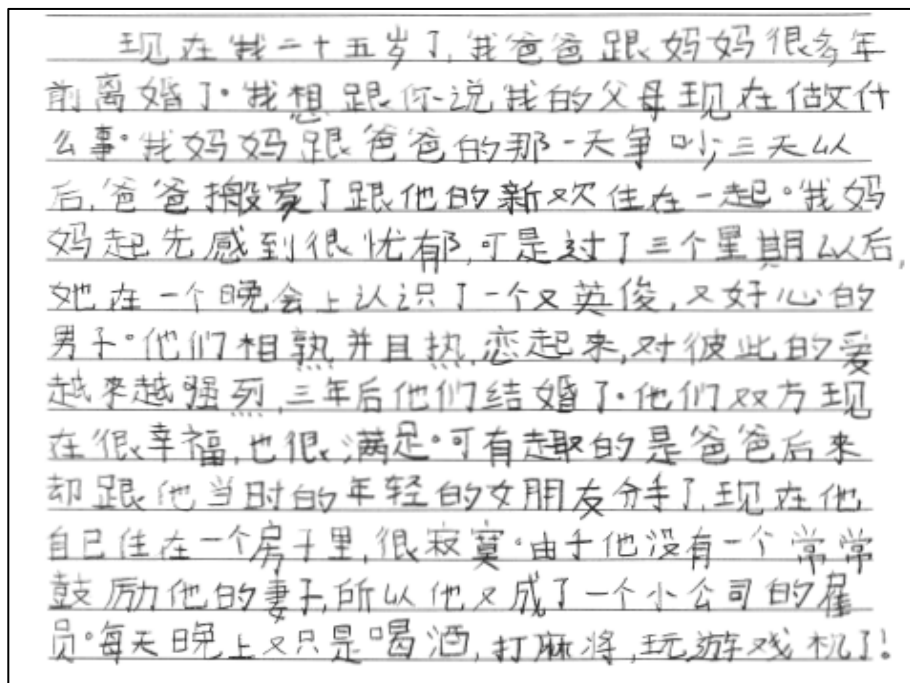 现在我二十五岁了,我爸爸跟妈妈很多年
前离婚了。我想跟你说我的父母现在做什
么事。我妈妈跟爸爸的那一天争吵;三天以
后,爸爸搬家了跟他的新欢住在一起。我妈
妈起先感到很忧郁,可是过了三个星期以后,
她在一个晚会上认识了一个又英俊,又好心的
男子。他们相熟并且热恋起来,对彼此的爱
越来越强烈,三年后他们结婚了。他们双方现
在很幸福,也很满足。可有趣的是爸爸后来
却跟他当时的年轻的女朋友分手了,现在他
自己住在一个房子里,很寂寞。由于他没有一个常常
鼓励他的妻子,所以他又成了一个小公司的雇
员。每天晚上又只是喝酒,打麻将,玩游戏机了!